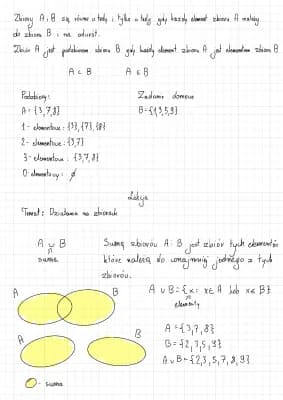 Zbiory A i B są równe wtedy i tylko wtedy gdy każdy element zbioru A należy
do zbioru B i na odwrót.
Zbiór A jest podzbiorem zbioru B gdy każdy element zbioru A jest elementem zbioru B.
A ⊂ B A ⊆ B
Podzbiory: Zadanie domowe
A = {3,7,8} B={1,3,5,9}
1 - elementowe : {3}, {7}, {8}
2 - elementowe : {3,7}
3 - elementowe : {3,7,8}
0 elementowy : ∅
Lekcja
Temat: Działania na zbiorach
A ∪ B Sumą zbiorów A i B jest zbiór tych elementów
suma które należą do co najmniej jednego z tych
zbiorów.
A B A ∪ B = {x: x∈ A lub x∈ B}
elementy
A = {3,7,8}
A B B = {2,3,5,9}
A ∪ B = {2,3,5,7,8,9}
- suma